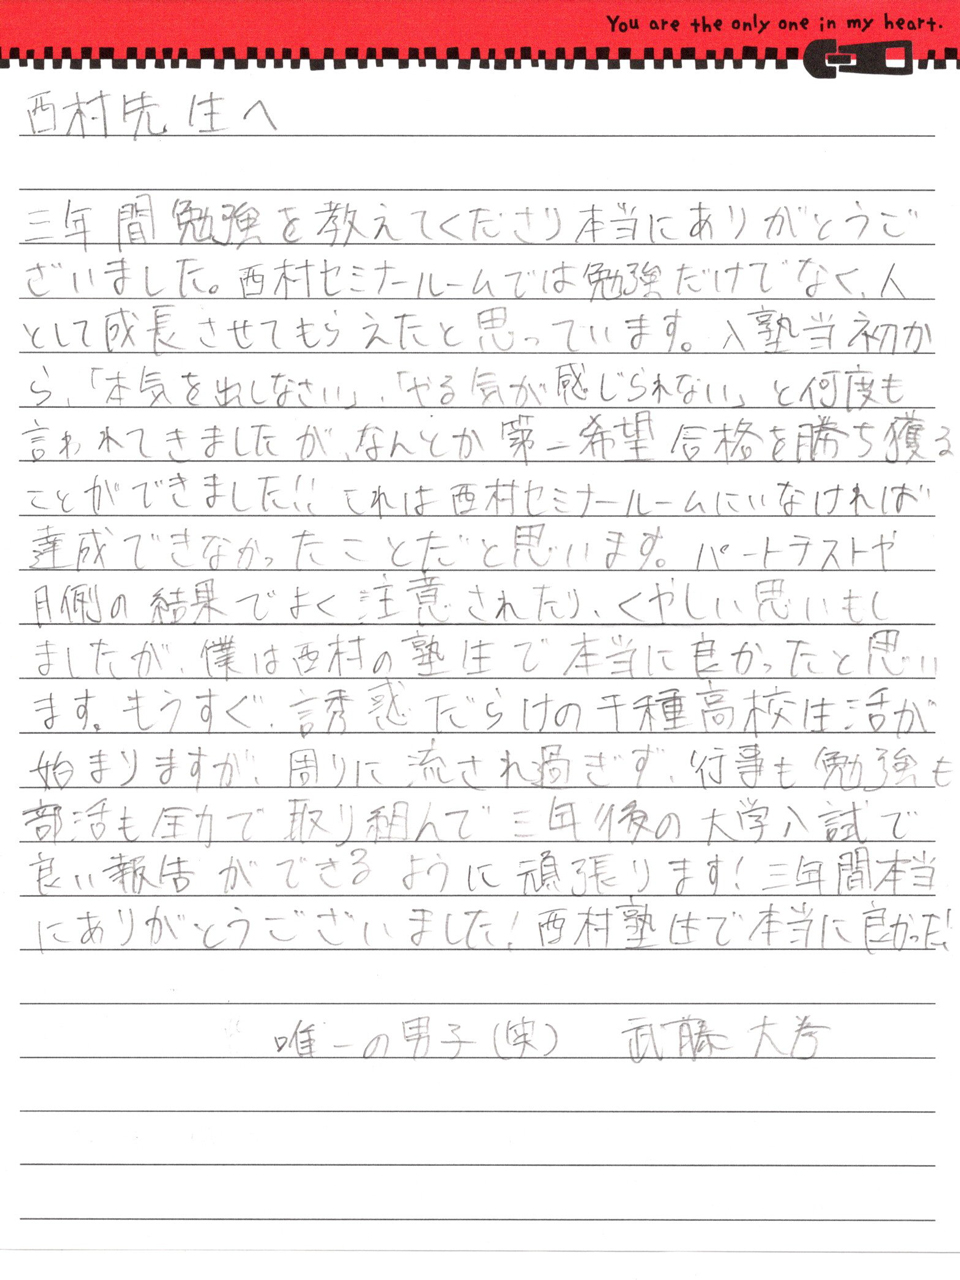 You are the only one in my heart.
西村先生へ
三年間勉強を教えてくださり本当にありがとうご
ざいました。西村セミナールームでは勉強だけでなく、人
として成長させてもらえたと思っています。入塾当初か
ら、「本気を出しなさい」、「やる気が感じられない」と何度も
言われてきましたが、なんとか第一希望合格を勝ち獲る
ことができました!! これは西村セミナールームにいなければ
達成できなかったことだと思います。パートテストや
月例の結果でよく注意されたり、くやしい思いもし
ましたが、僕は西村の塾生で本当に良かったと思い
ます。もうすぐ、誘惑だらけの千種高校生活が
始まりますが、周りに流され過ぎず、行事も勉強も
部活も全力で取り組んで三年後の大学入試で
良い報告ができるように頑張ります!三年間本当
にありがとうございました!西村塾生で本当に良かった!
唯一の男子(笑) 武藤大